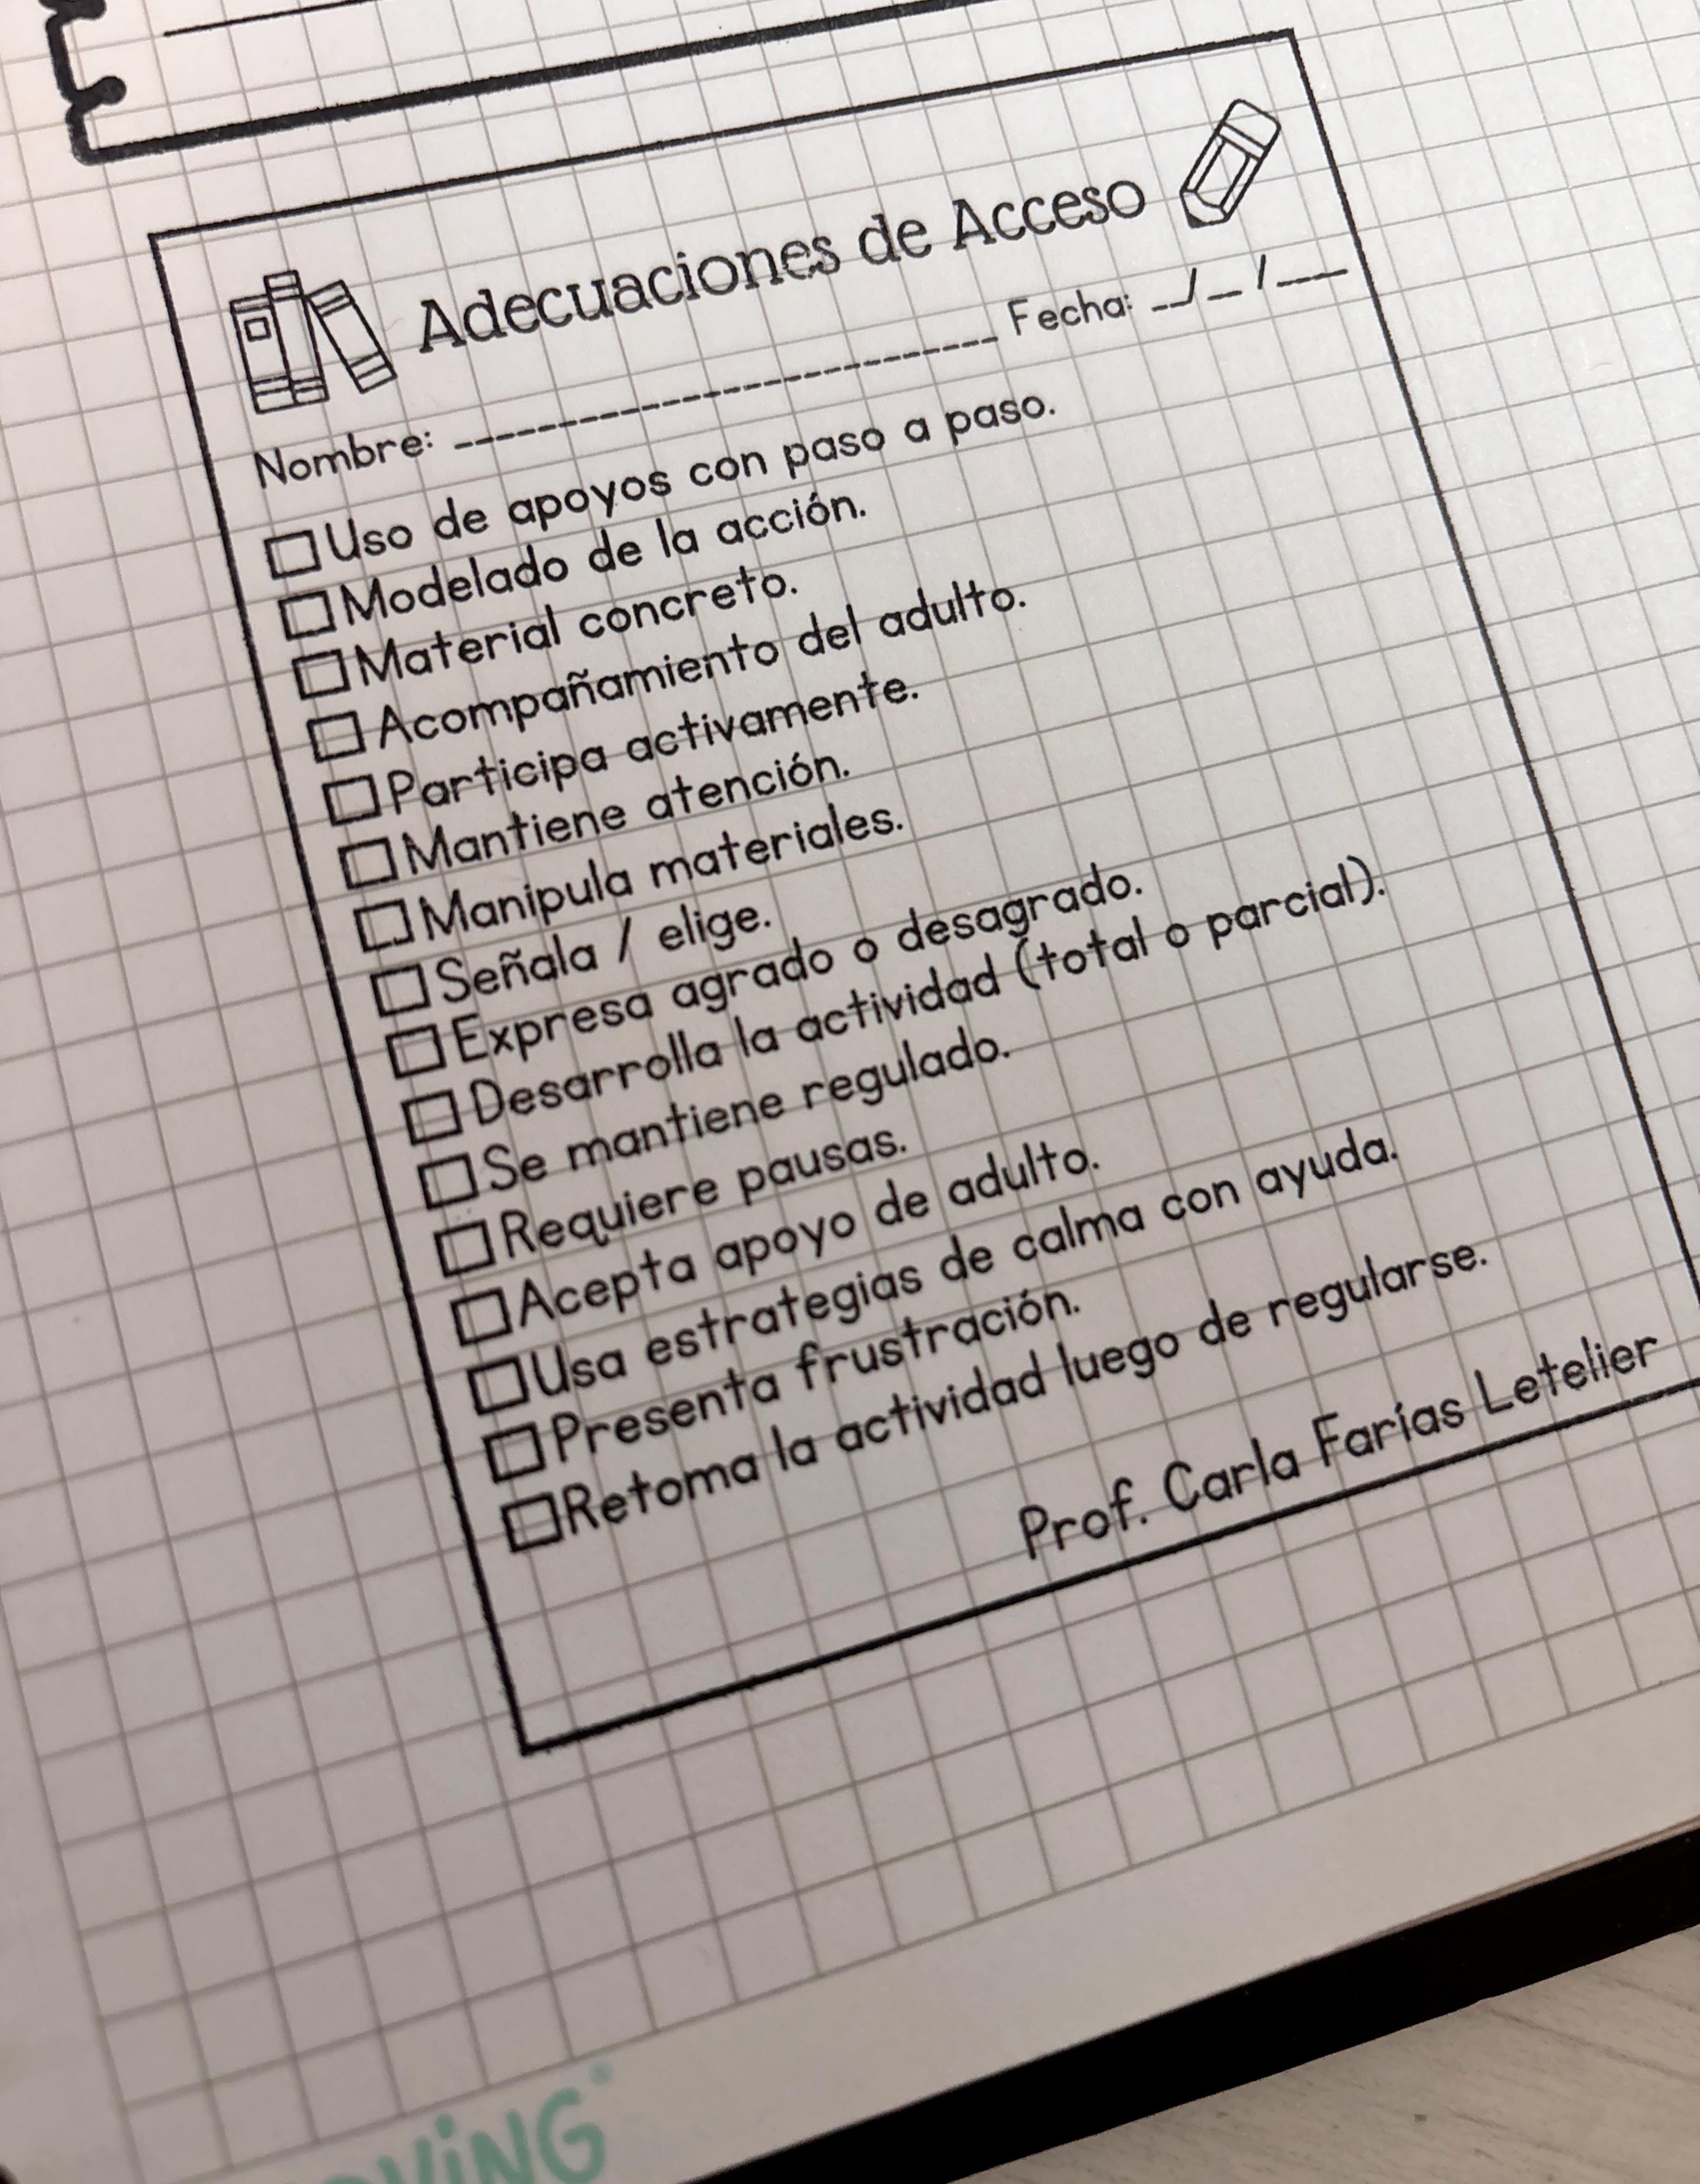 Adecuaciones de Acceso
Nombre: ____________________ Fecha: __/__/___
Uso de apoyos con paso a paso.
Modelado de la acción.
Material concreto.
Acompañamiento del adulto.
Participa activamente.
Mantiene atención.
Manipula materiales.
Señala / elige.
Expresa agrado o desagrado.
Desarrolla la actividad (total o parcial).
Se mantiene regulado.
Requiere pausas.
Acepta apoyo de adulto.
Usa estrategias de calma con ayuda.
Presenta frustración.
Retoma la actividad luego de regularse.
Prof. Carla Farías Letelier